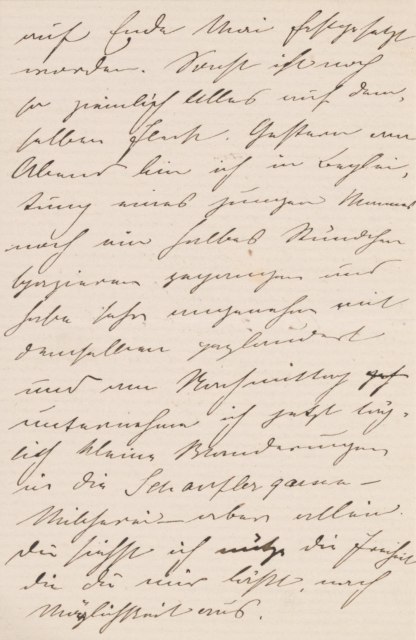 auf Ende Mai festgesetzt
worden. Sonst ist noch
so ziemlich Alles auf dem-
selben Fleck. Gestern am
Abend bin ich in Beglei-
tung eines jungen Mannes
noch ein halbes Stündchen
spazieren gegangen und
habe sehr angenehm mit
demselben geplaudert
und am Nachmittag
unternehme ich jetzt täg-
lich kleine Wanderungen
in die Schauflergasse-
Milcherei – aber allein.
Du siehst ich nütze die Freiheit
die du mir läßt, nach
Möglichkeit aus.